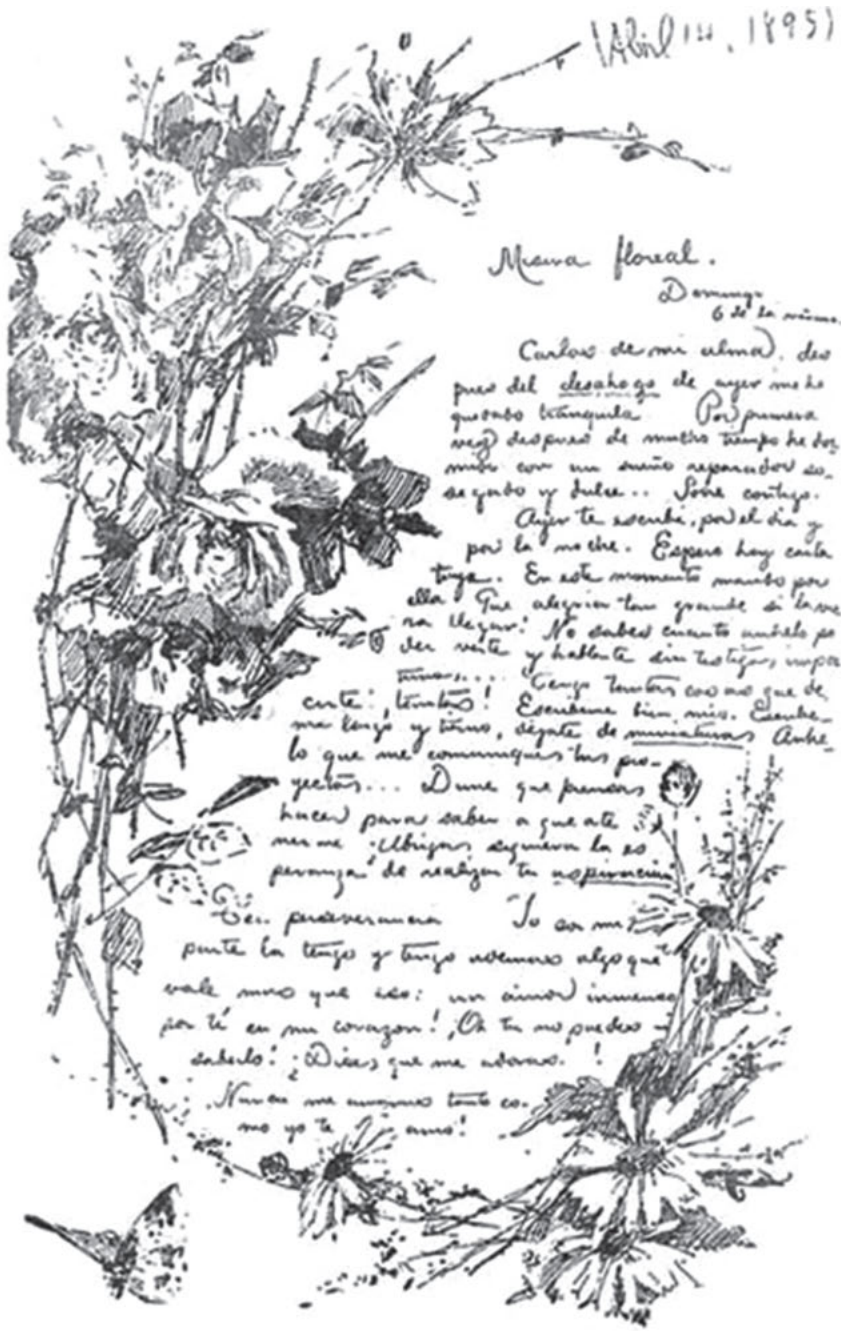 (Abril 14, 1895)
Misiva floreal.
Domingo
6 de la
Carlos de mi alma, des
pues del desahogo de ayer me he
quedado tranquila Por primera
vez despues de mucho tiempo he dor
mido con un sueño reparador so-
segado y dulce... Soñe contigo.
Ayer te escribi, por el dia y
por la noche. Espero hoy carta
tuya. En este momento mando por
ella. Que alegria tan grande si la vie
ra llegar! No sabes cuanto anhelo po
der verte y hablarte sin testigos, impor
tunos.... Tengo tantas cosas que de
cirte! tantas! Escribeme bien mio. Escribe
me largo y tierno, déjate de miniaturas Anhe-
lo que me comuniques tus pro-
yectos... Dime que piensas
hacer para saber a que ate
nerme ¿Abrigas siquiera la es
peranza de realizar tu aspiracion
Ten perseverancia Yo por mi
parte la tengo y tengo ademas algo que
vale mas que eso: un amor inmenso
por tí en mi corazon! ¡Oh tu no puedes
saberlo! ¿Dices que me adoras. !
Nunca me tanto co-
mo yo te amo!